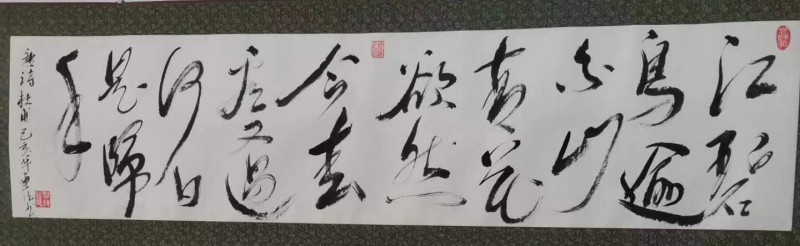 江碧
鳥逾
白山
青花
欲然
今春
看又過
何日
是歸
年
詩杜甫己亥年